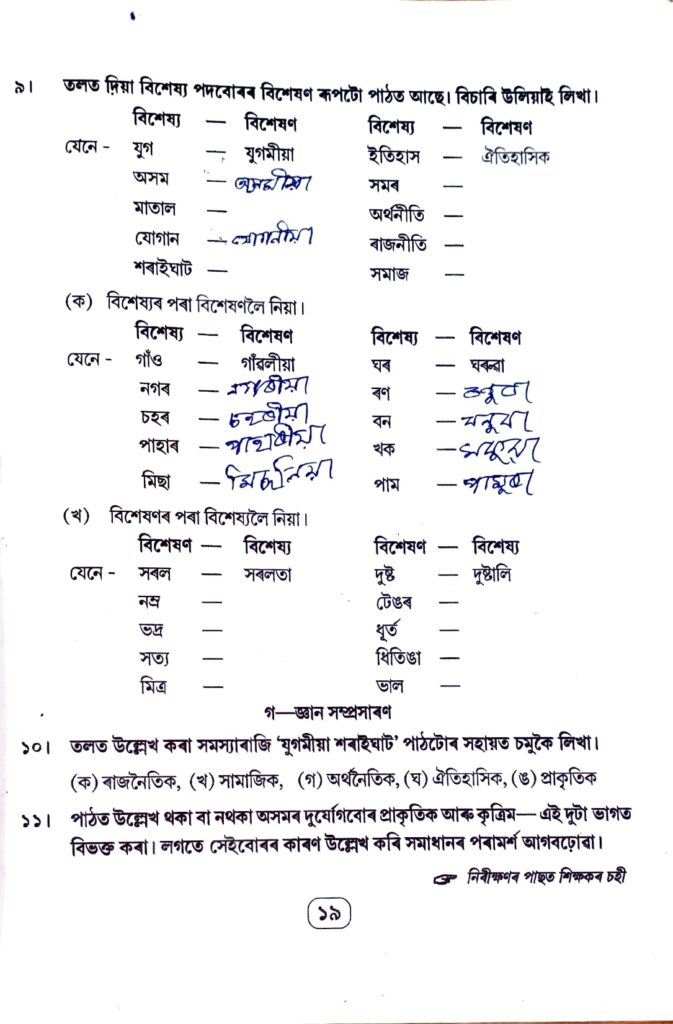 ৯। তলত দিয়া বিশেষ্য পদবোৰৰ বিশেষণ ৰূপটো পাঠত আছে। বিচাৰি উলিয়াই লিখা।
বিশেষ্য — বিশেষণ বিশেষ্য — বিশেষণ
যেনে - যুগ — যুগমীয়া ইতিহাস — ঐতিহাসিক
অসম — অসমীয়া সমৰ —
মাতাল — অৰ্থনীতি —
যোগান — যোগনীয়া ৰাজনীতি —
শৰাইঘাট — সমাজ —
(ক) বিশেষ্যৰ পৰা বিশেষণলৈ নিয়া।
বিশেষ্য — বিশেষণ বিশেষ্য — বিশেষণ
যেনে - গাঁও — গাঁৱলীয়া ঘৰ — ঘৰুৱা
নগৰ — ৰণ —
চহৰ — বন — বনুৱা
পাহাৰ — খক —
মিছা — পাম — পামুৱা
(খ) বিশেষণৰ পৰা বিশেষ্যলৈ নিয়া।
বিশেষণ — বিশেষ্য বিশেষণ — বিশেষ্য
যেনে - সৰল — সৰলতা দুষ্ট — দুষ্টালি
নম্ৰ — টেঙৰ —
ভদ্ৰ — ধূৰ্ত —
সত্য — ধিতিঙা —
মিত্ৰ — ভাল —
গ—জ্ঞান সম্প্ৰসাৰণ
১০। তলত উল্লেখ কৰা সমস্যাৰাজি ‘যুগমীয়া শৰাইঘাট’ পাঠটোৰ সহায়ত চমুকৈ লিখা।
(ক) ৰাজনৈতিক, (খ) সামাজিক, (গ) অৰ্থনৈতিক, (ঘ) ঐতিহাসিক, (ঙ) প্ৰাকৃতিক
১১। পাঠত উল্লেখ থকা বা নথকা অসমৰ দুৰ্যোগবোৰ প্ৰাকৃতিক আৰু কৃত্ৰিম— এই দুটা ভাগত
বিভক্ত কৰা। লগতে সেইবোৰৰ কাৰণ উল্লেখ কৰি সমাধানৰ পৰামৰ্শ আগবঢ়োৱা।
☞ নিৰীক্ষণৰ পাছত শিক্ষকৰ চহী
১৯